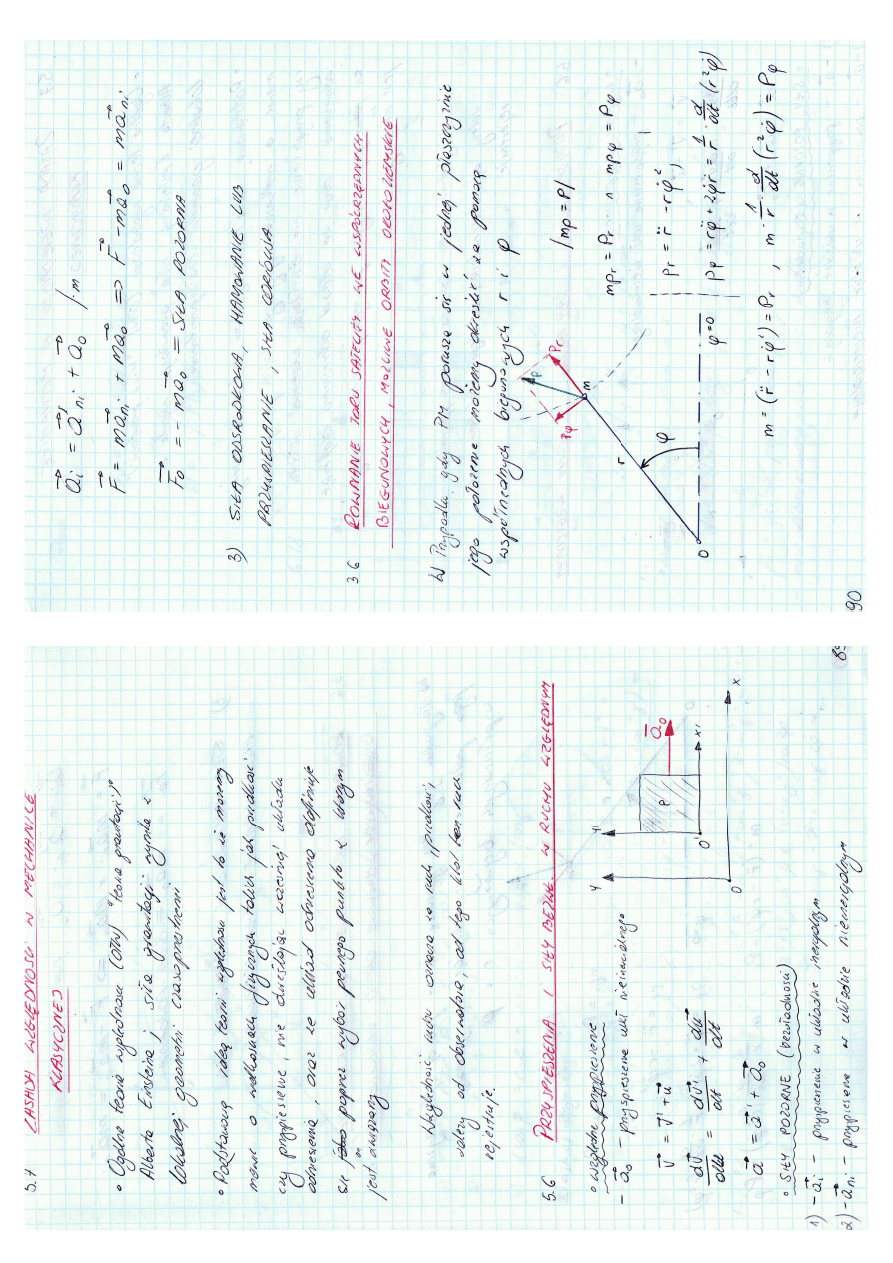 5.7 ZASADA WZGLĘDNOŚCI W MECHANICE
KLASYCZNEJ
• Ogólna teoria względności (OTW) "teoria grawitacji"
Alberta Einsteina; siła grawitacji wynika z
lokalnej geometrii czasoprzestrzeni
• Podstawową ideą teorii względności jest to że możemy
mówić o wielkościach fizycznych takich jak prędkość
czy przyspieszenie, nie określając wcześniej układu
odniesienia, oraz że układ odniesienia definiuje
się poprzez wybór pewnego punktu z którym
jest on związany
Względność ruchu oznacza że ruch, prędkość,
zależy od obserwatora, od tego kto ten ruch
rejestruje.
5.6 PRZYSPIESZENIA I SIŁY BEZWŁ. W RUCHU WZGLĘDNYM
• względne przyspieszenie
- a₀ - przyspieszenie ukł nieinercjalnego
v = v' + u
dv/dt = dv'/dt + du/dt
a = a' + a₀
y
y'
P
a₀
O'
x'
O
x
• SIŁY POZORNE (bezwładności)
1) - aᵢ - przyspieszenie w układzie inercjalnym
2) - aₙᵢ - przyspieszenie w układzie nieinercjalnym
89
aᵢ = a'ₙᵢ + a₀ /·m
F = maₙᵢ + ma₀ => F - ma₀ = maₙᵢ
F₀ = - ma₀ = SIŁA POZORNA
3) SIŁA ODŚRODKOWA, HAMOWANIE LUB
PRZYSPIESZANIE, SIŁA CORIOLISA
3.6 RÓWNANIE TORU SATELITY WE WSPÓŁRZĘDNYCH
BIEGUNOWYCH, MOŻLIWE ORBITY OKOŁOZIEMSKIE
W Przypadku gdy PM porusza się w jednej płaszczyźnie
jego położenie możemy określić za pomocą
współrzędnych biegunowych r i φ
/mp = P/
pφ
p
pr
m
r
φ
O
φ=0
mpr = Pr ∧ mpφ = Pφ
pr = r̈ - rφ̇²,
pφ = rφ̈ + 2φ̇ṙ = 1/r · d/dt (r²φ̇)
m = (r̈ - rφ̇²) = Pr , m · 1/r · d/dt (r²φ̇) = Pφ
90